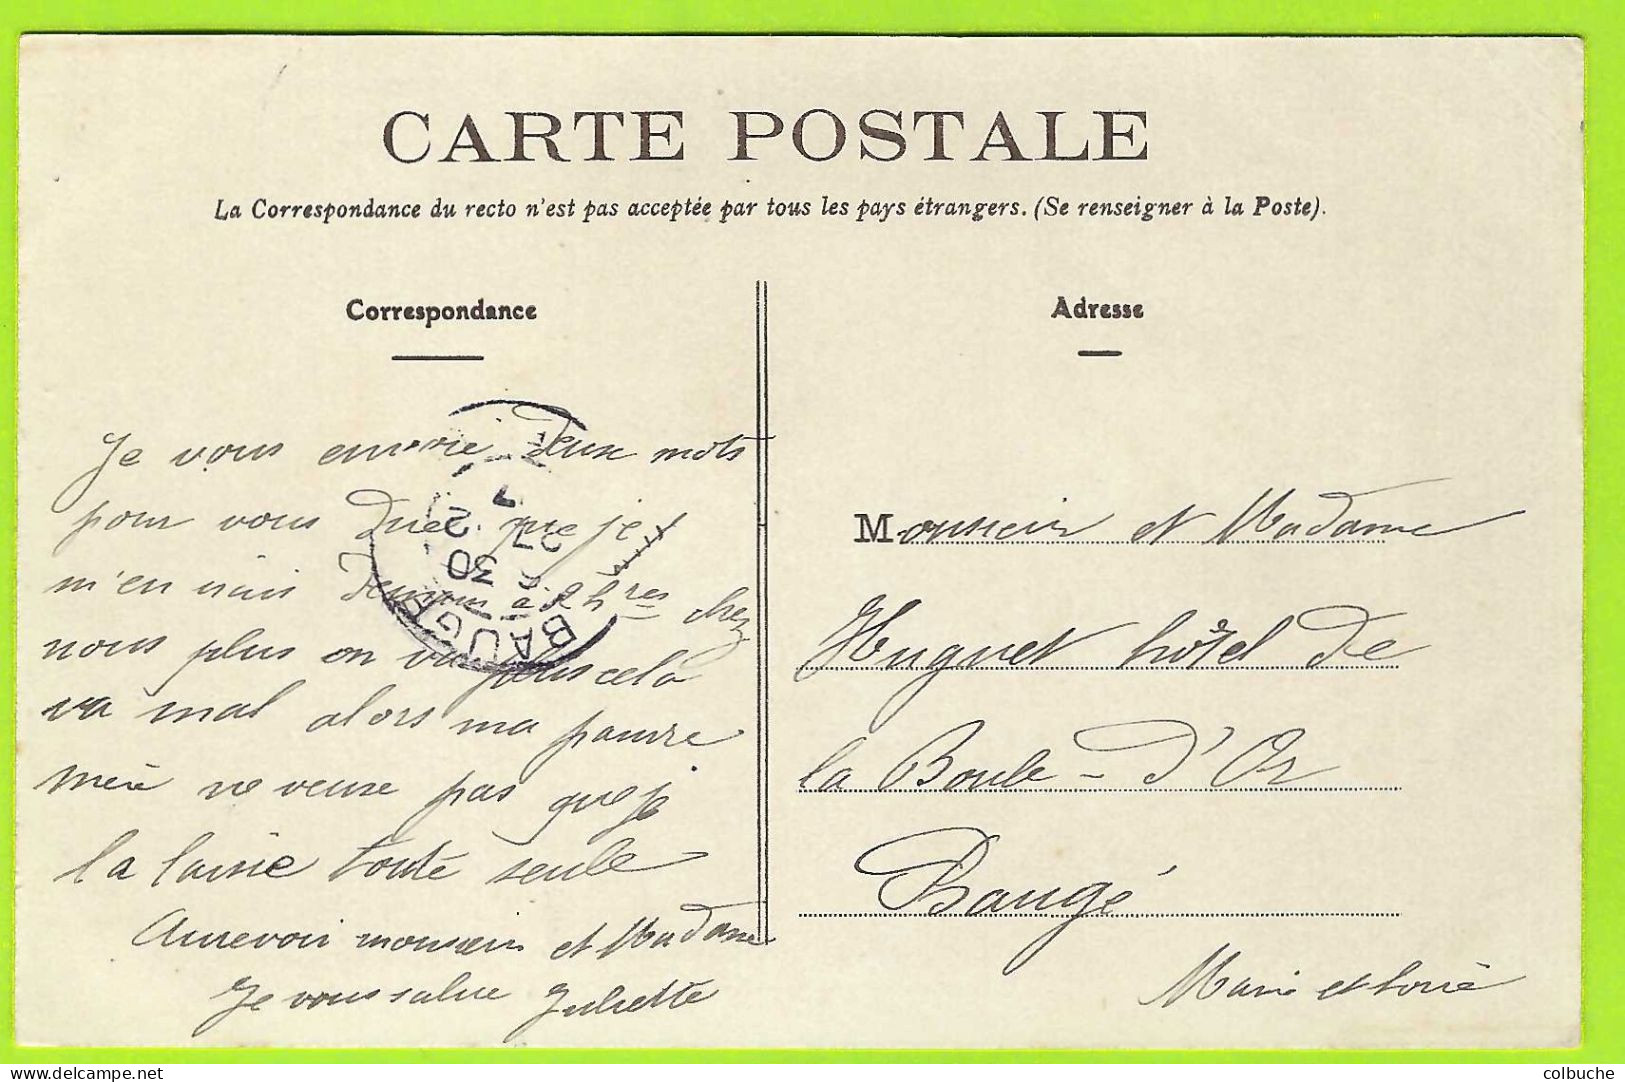 CARTE POSTALE
La Correspondance du recto n'est pas acceptée par tous les pays étrangers. (Se renseigner à la Poste).
Correspondance
Je vous envoie deux mots
pour vous dire que je
m'en vais demain à 2 hres chez
nous plus on va plus cela
va mal alors ma pauvre
mère ne veux pas que je
la laisse toute seule
Aurevoir monsieur et Madame
Je vous salue Juliette
BAUGE
Adresse
Monsieur et Madame
Huguet hôtel de
la Boule-d'Or
Baugé
Maine et Loire
delcampe.net
colbuche